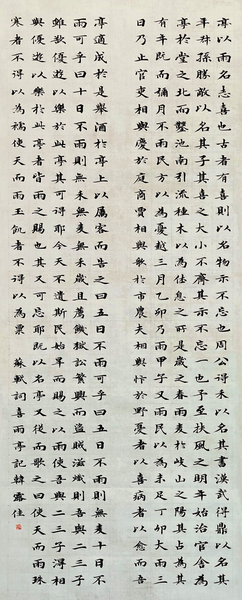 亭以雨名志喜也古者有喜則以名物示不忘也周公得禾以名其書漢武得鼎以名其
年叔孫勝敵以名其子其喜之大小不齊其示不忘一也予至扶風之明年始治官舍為
亭於堂之北而鑿池南引流種木以為休息之所是歲之春雨麥於岐山之陽其占為
有年既而彌月不雨民方以為憂越三月乙卯乃雨甲子又雨民以為未足丁卯大雨三
日乃止官吏相與慶於庭商賈相與歌於市農夫相與忭於野憂者以喜病者以愈而吾
亭適成於是舉酒於亭上以屬客而告之曰五日不雨可乎曰五日不雨則無麥十日不
雨可乎曰十日不雨則無禾無麥無禾歲且薦饑獄訟繁興而盜賊滋熾則吾與二三子
雖欲優遊以樂於此亭其可得耶今天不遺斯民始旱而賜之以雨使吾與二三子得相
與優遊以樂於此亭者皆雨之賜也其又可忘耶既以名亭又從而歌之曰使天而雨珠
寒者不得以為襦使天而雨玉飢者不得以為粟 蘇軾詞喜雨亭記韓露佳